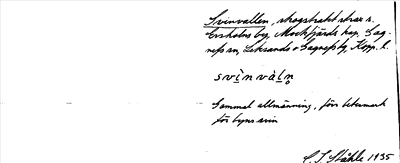 Svinvallen, skogstrakt strax s.
Ersholns by, Mockfjärds kap. Gag-
nefs sn, Leksands o Gagnefs tg, Kopp. l.
svìnvàl̥n̥
Gammal allmänning, förr betesmark
för byns svin
C. I. Ståhle 1935